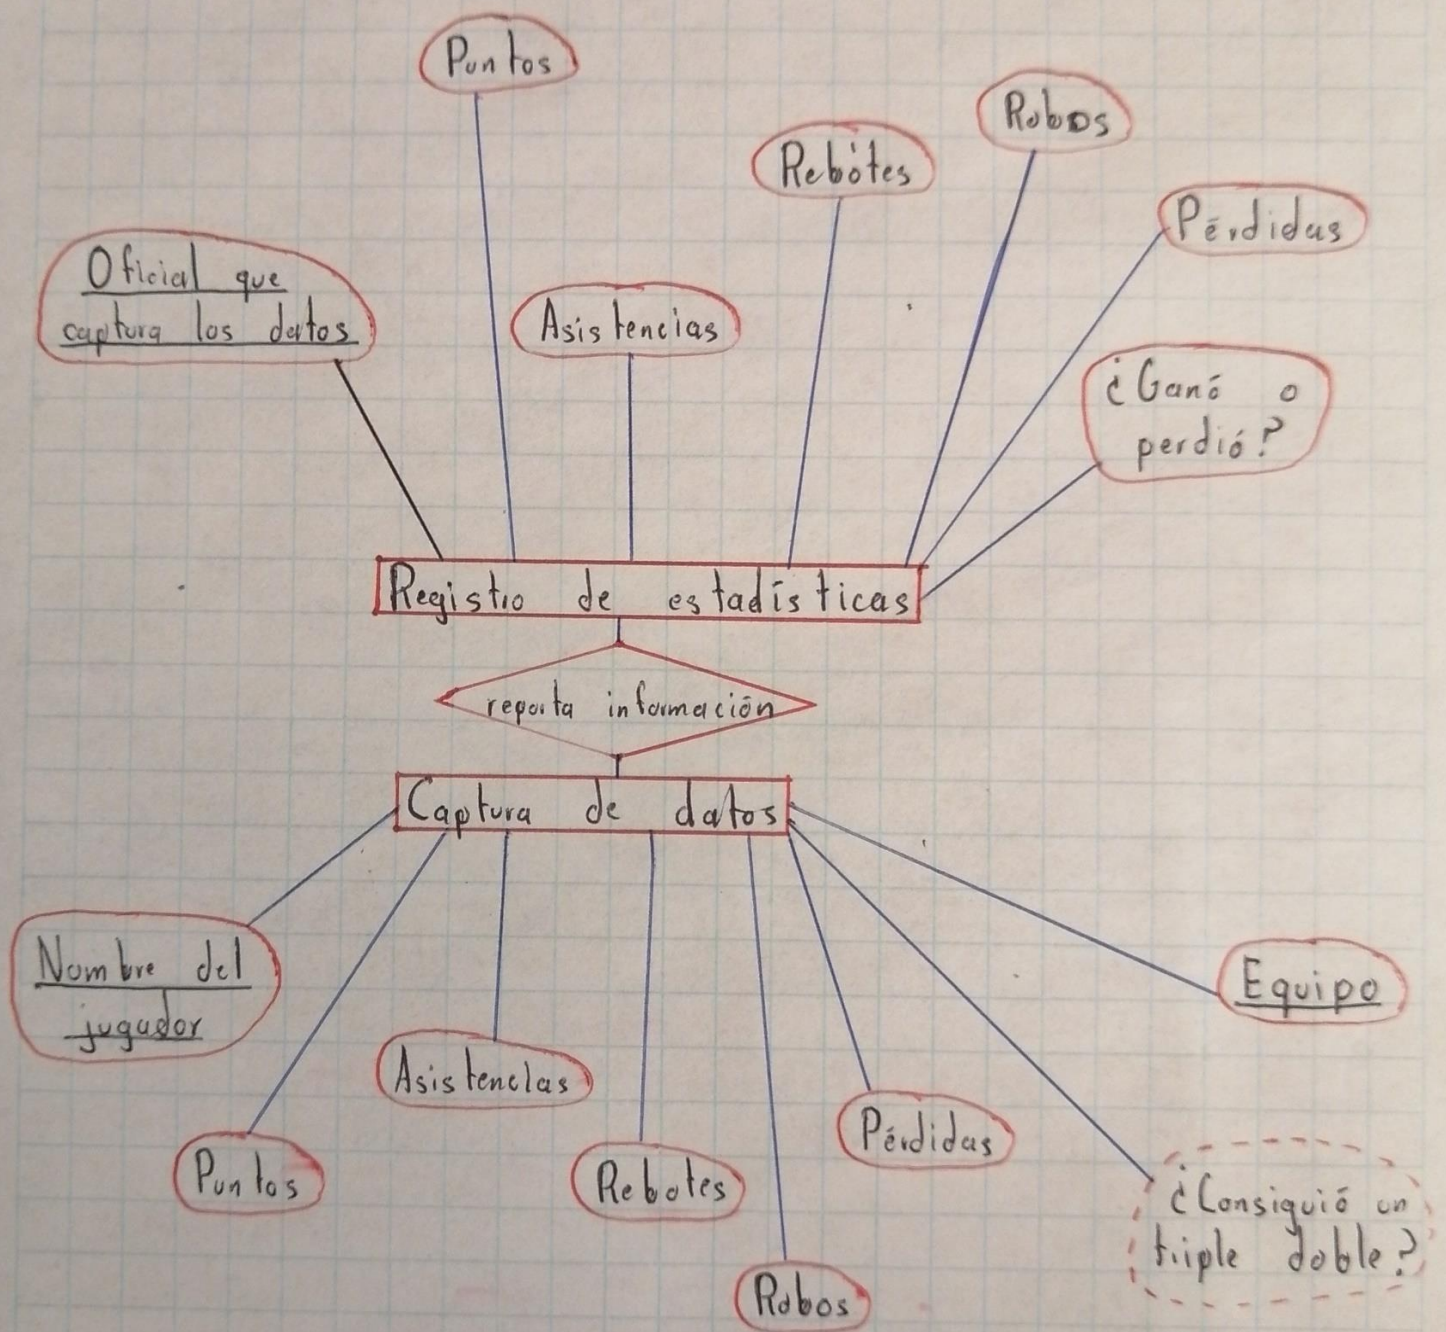 Puntos
Robos
Rebótes
Pérdidas
Oficial que
captura los datos
Asistencias
¿Ganó o
perdió?
Registro de estadísticas
reporta información
Captura de datos
Nombre del
jugador
Equipo
Asistencias
Pérdidas
Puntos
Rebotes
¿Consiguió un
triple doble?
Robos